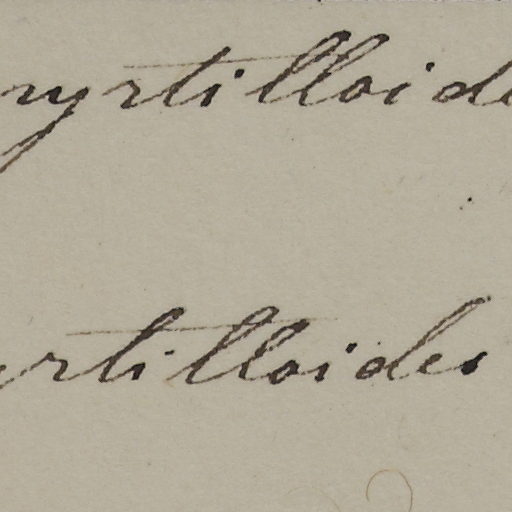 myrtilloide
yrtilloides